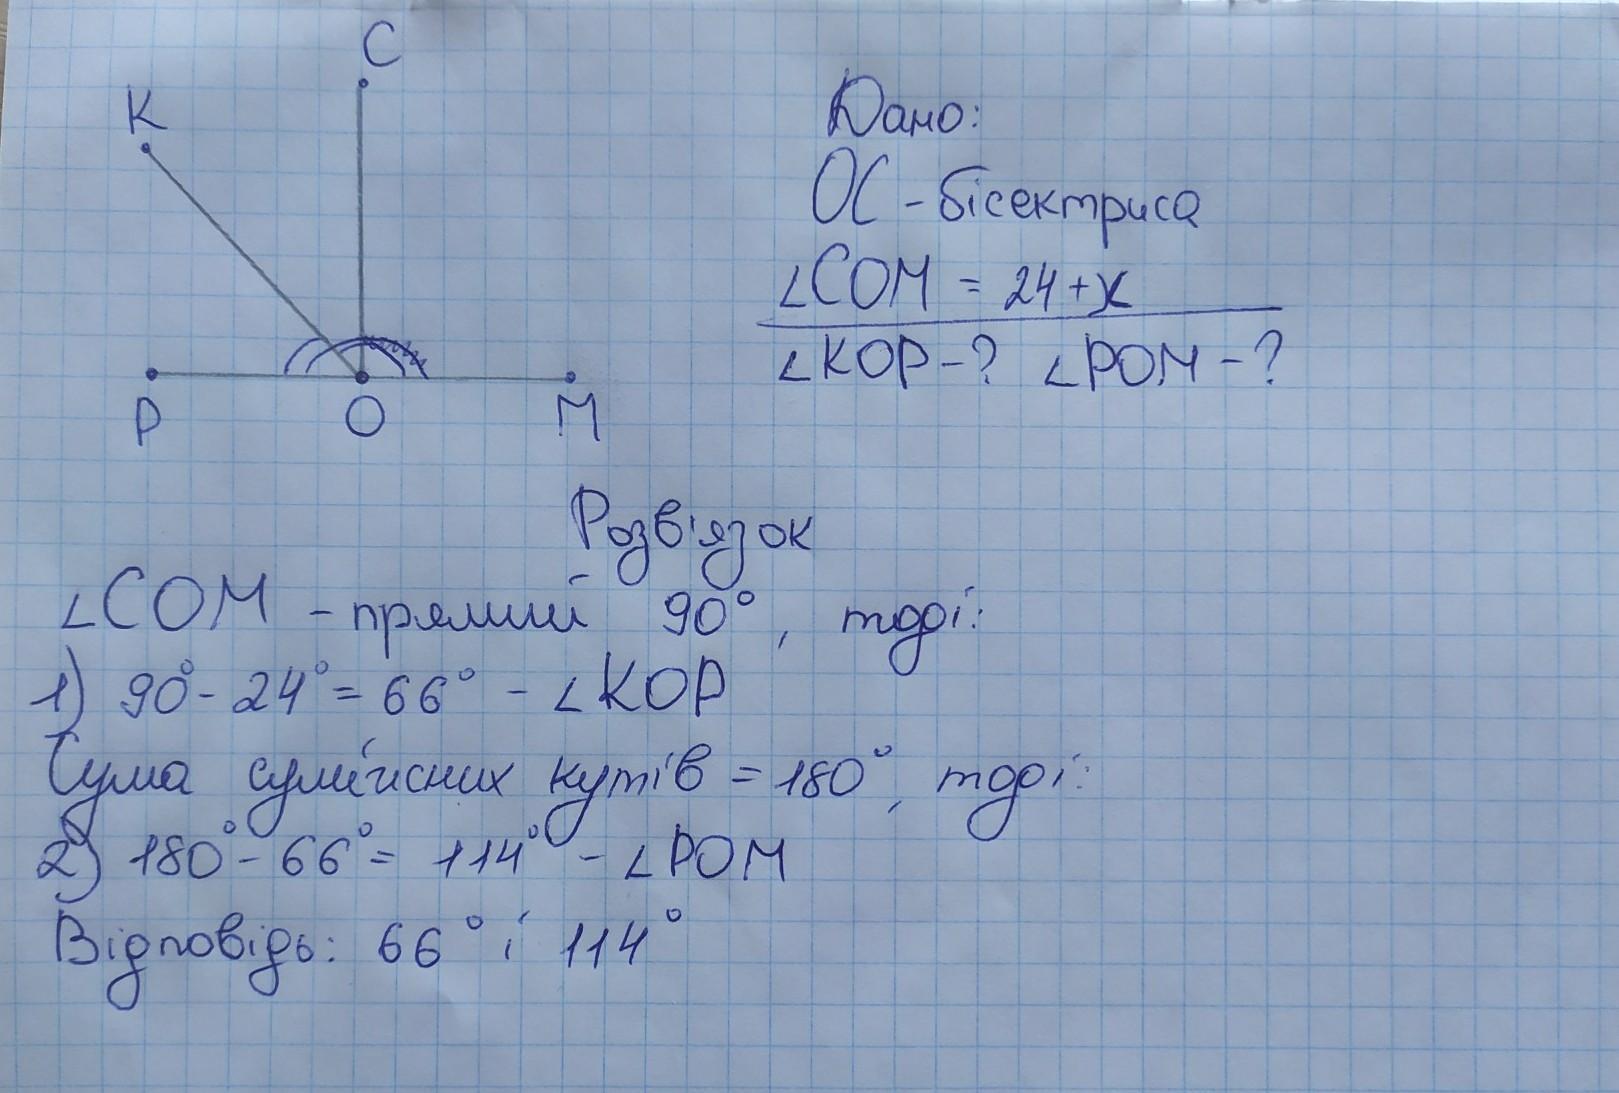 C
K
P
O
M
Дано:
OC - бісектриса
∠COM = 24+x
∠KOP-? ∠POM-?
Розв'язок
∠COM - прямий 90°, тоді:
1) 90°- 24°= 66° - ∠KOP
Сума суміжних кутів = 180°, тоді:
2) 180°- 66°= 114° - ∠POM
Відповідь: 66° і 114°